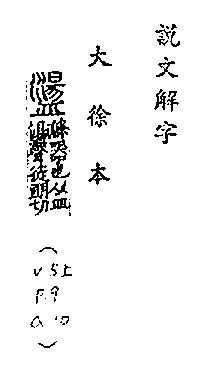 說文解字
大徐本
盪滌器也从皿
湯聲徒朗切
(
V 5上
P. 9
)